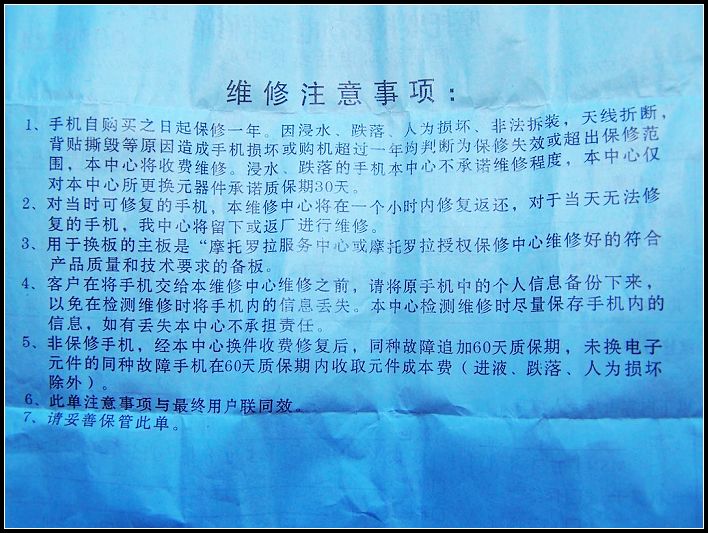 维修注意事项：
1、手机自购买之日起保修一年。因浸水、跌落、人为损坏、非法拆装，天线折断，
背贴撕毁等原因造成手机损坏或购机超过一年均判断为保修失效或超出保修范
围，本中心将收费维修。浸水、跌落的手机本中心不承诺维修程度，本中心仅
对本中心所更换元器件承诺质保期30天。
2、对当时可修复的手机，本维修中心将在一个小时内修复返还，对于当天无法修
复的手机，我中心将留下或返厂进行维修。
3、用于换板的主板是“摩托罗拉服务中心或摩托罗拉授权保修中心维修好的符合
产品质量和技术要求的备板。
4、客户在将手机交给本维修中心维修之前，请将原手机中的个人信息备份下来，
以免在检测维修时将手机内的信息丢失。本中心检测维修时尽量保存手机内的
信息，如有丢失本中心不承担责任。
5、非保修手机，经本中心换件收费修复后，同种故障追加60天质保期，未换电子
元件的同种故障手机在60天质保期内收取元件成本费（进液、跌落、人为损坏
除外）。
6、此单注意事项与最终用户联同效。
7、请妥善保管此单。